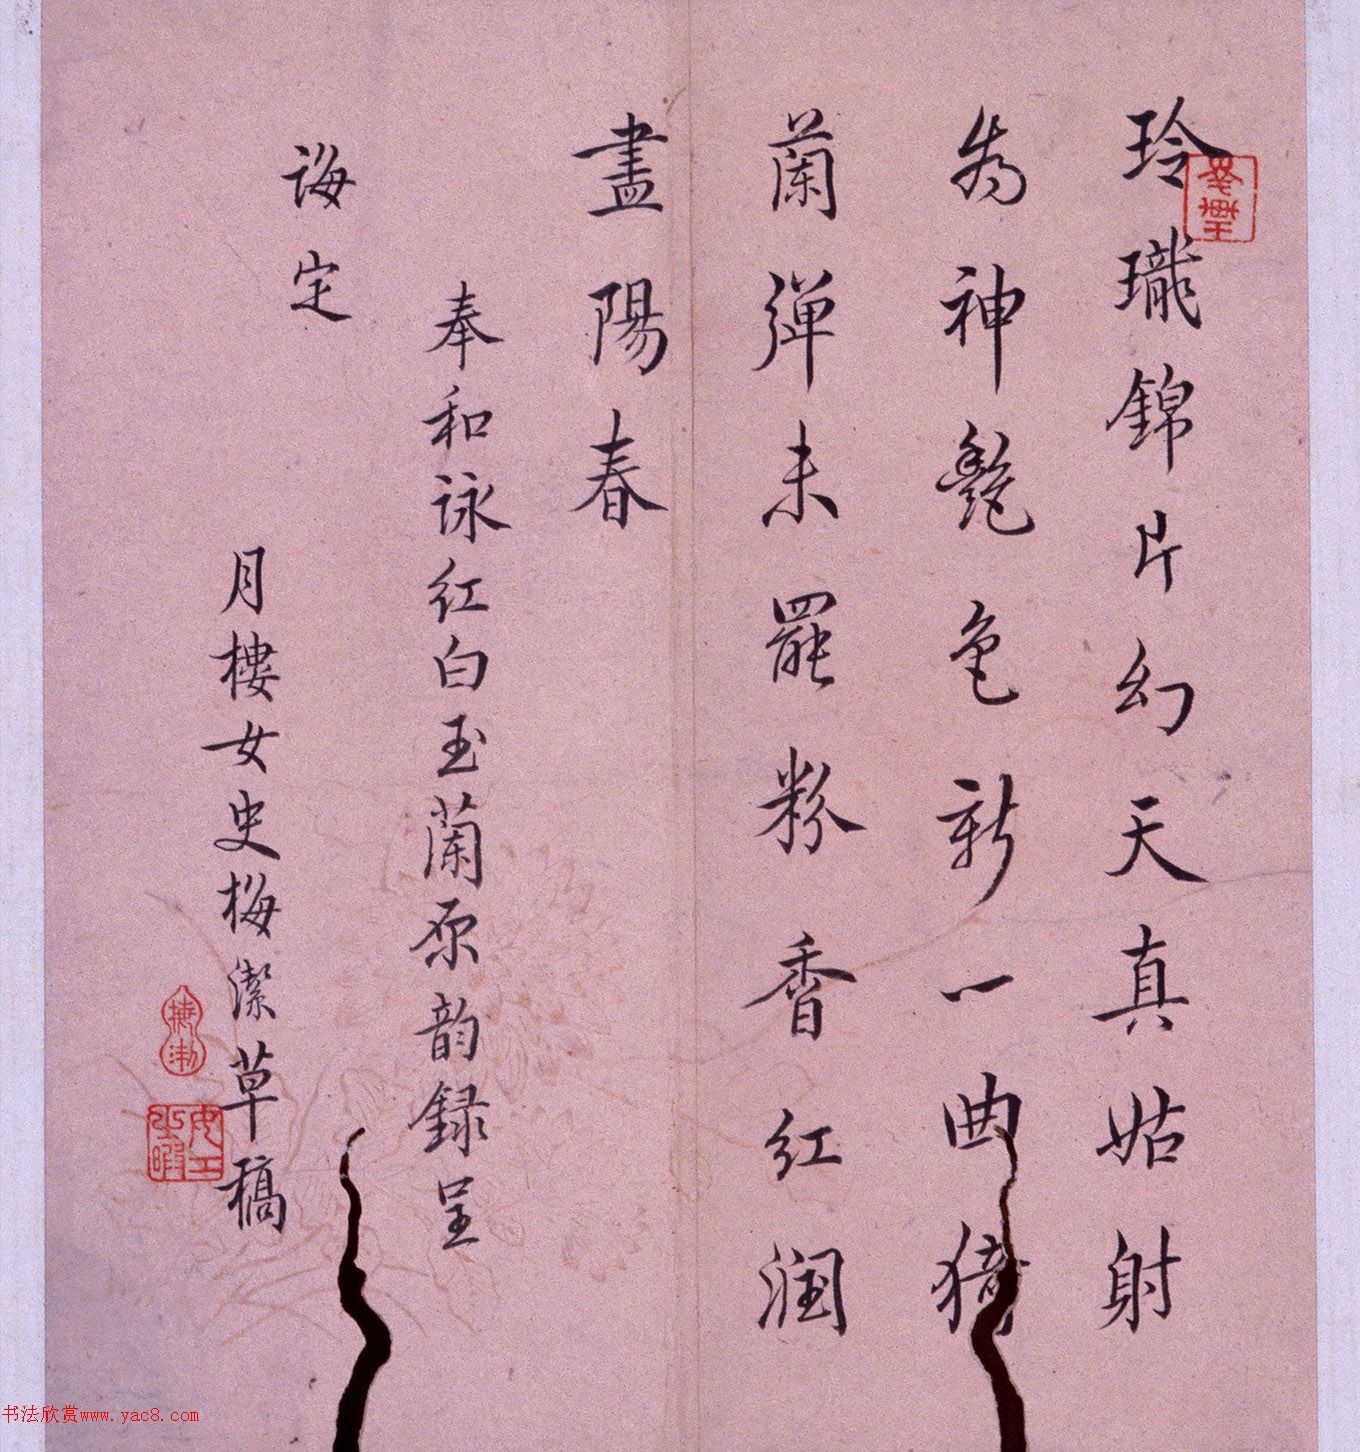 玲瓏錦片幻天真姑射
為神艷色新一曲猗
蘭彈未罷粉香紅潤
盡陽春
奉和詠紅白玉蘭原韵録呈
誨定
月樓女史梅潔草稿
书法欣赏www.yac8.com